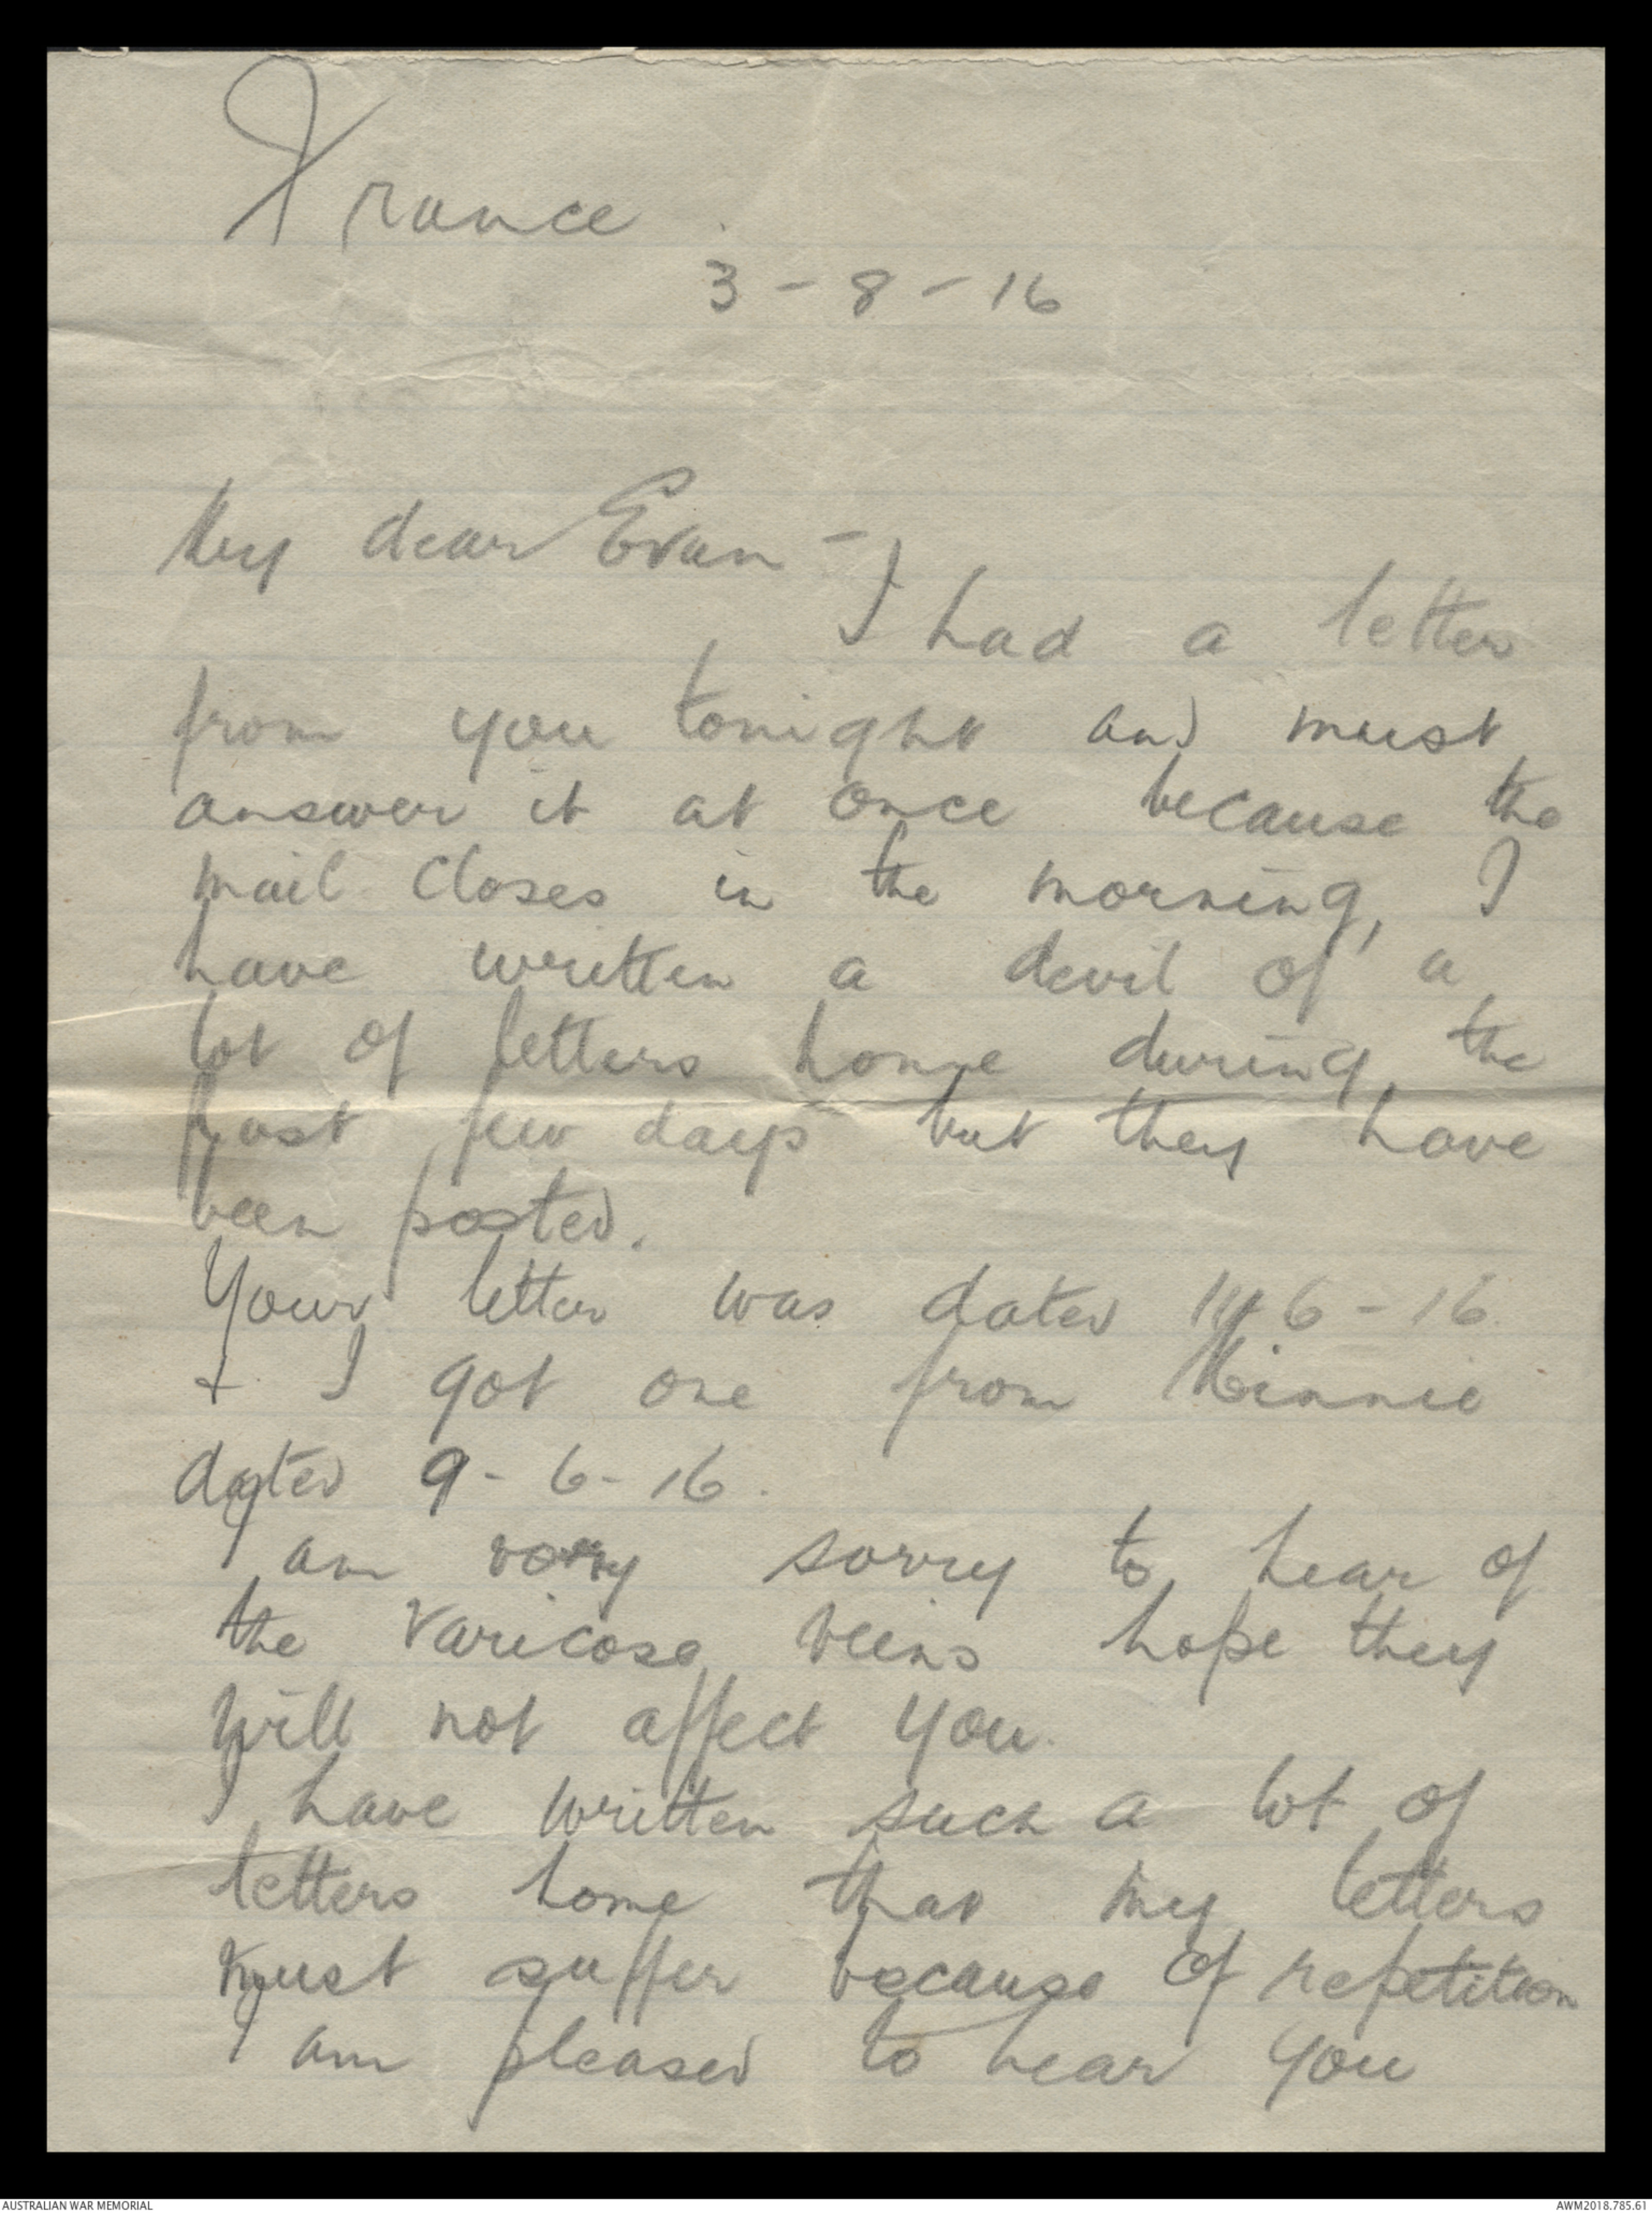 France
3 - 8 - 16
My dear Evan -
I had a letter
from you tonight and must
answer it at once because the
mail closes in the morning, I
have written a devil of a
lot of letters home during the
past few days but they have
been posted.
Your letter was dated 6 - 16
& I got one from Minnie
dated 9 - 6 - 16.
I am very sorry to hear of
the varicose veins hope they
will not affect you.
I have written such a lot of
letters home that my letters
must suffer because of repetition
I am pleased to hear you
AUSTRALIAN WAR MEMORIAL
AWM2018.785.61